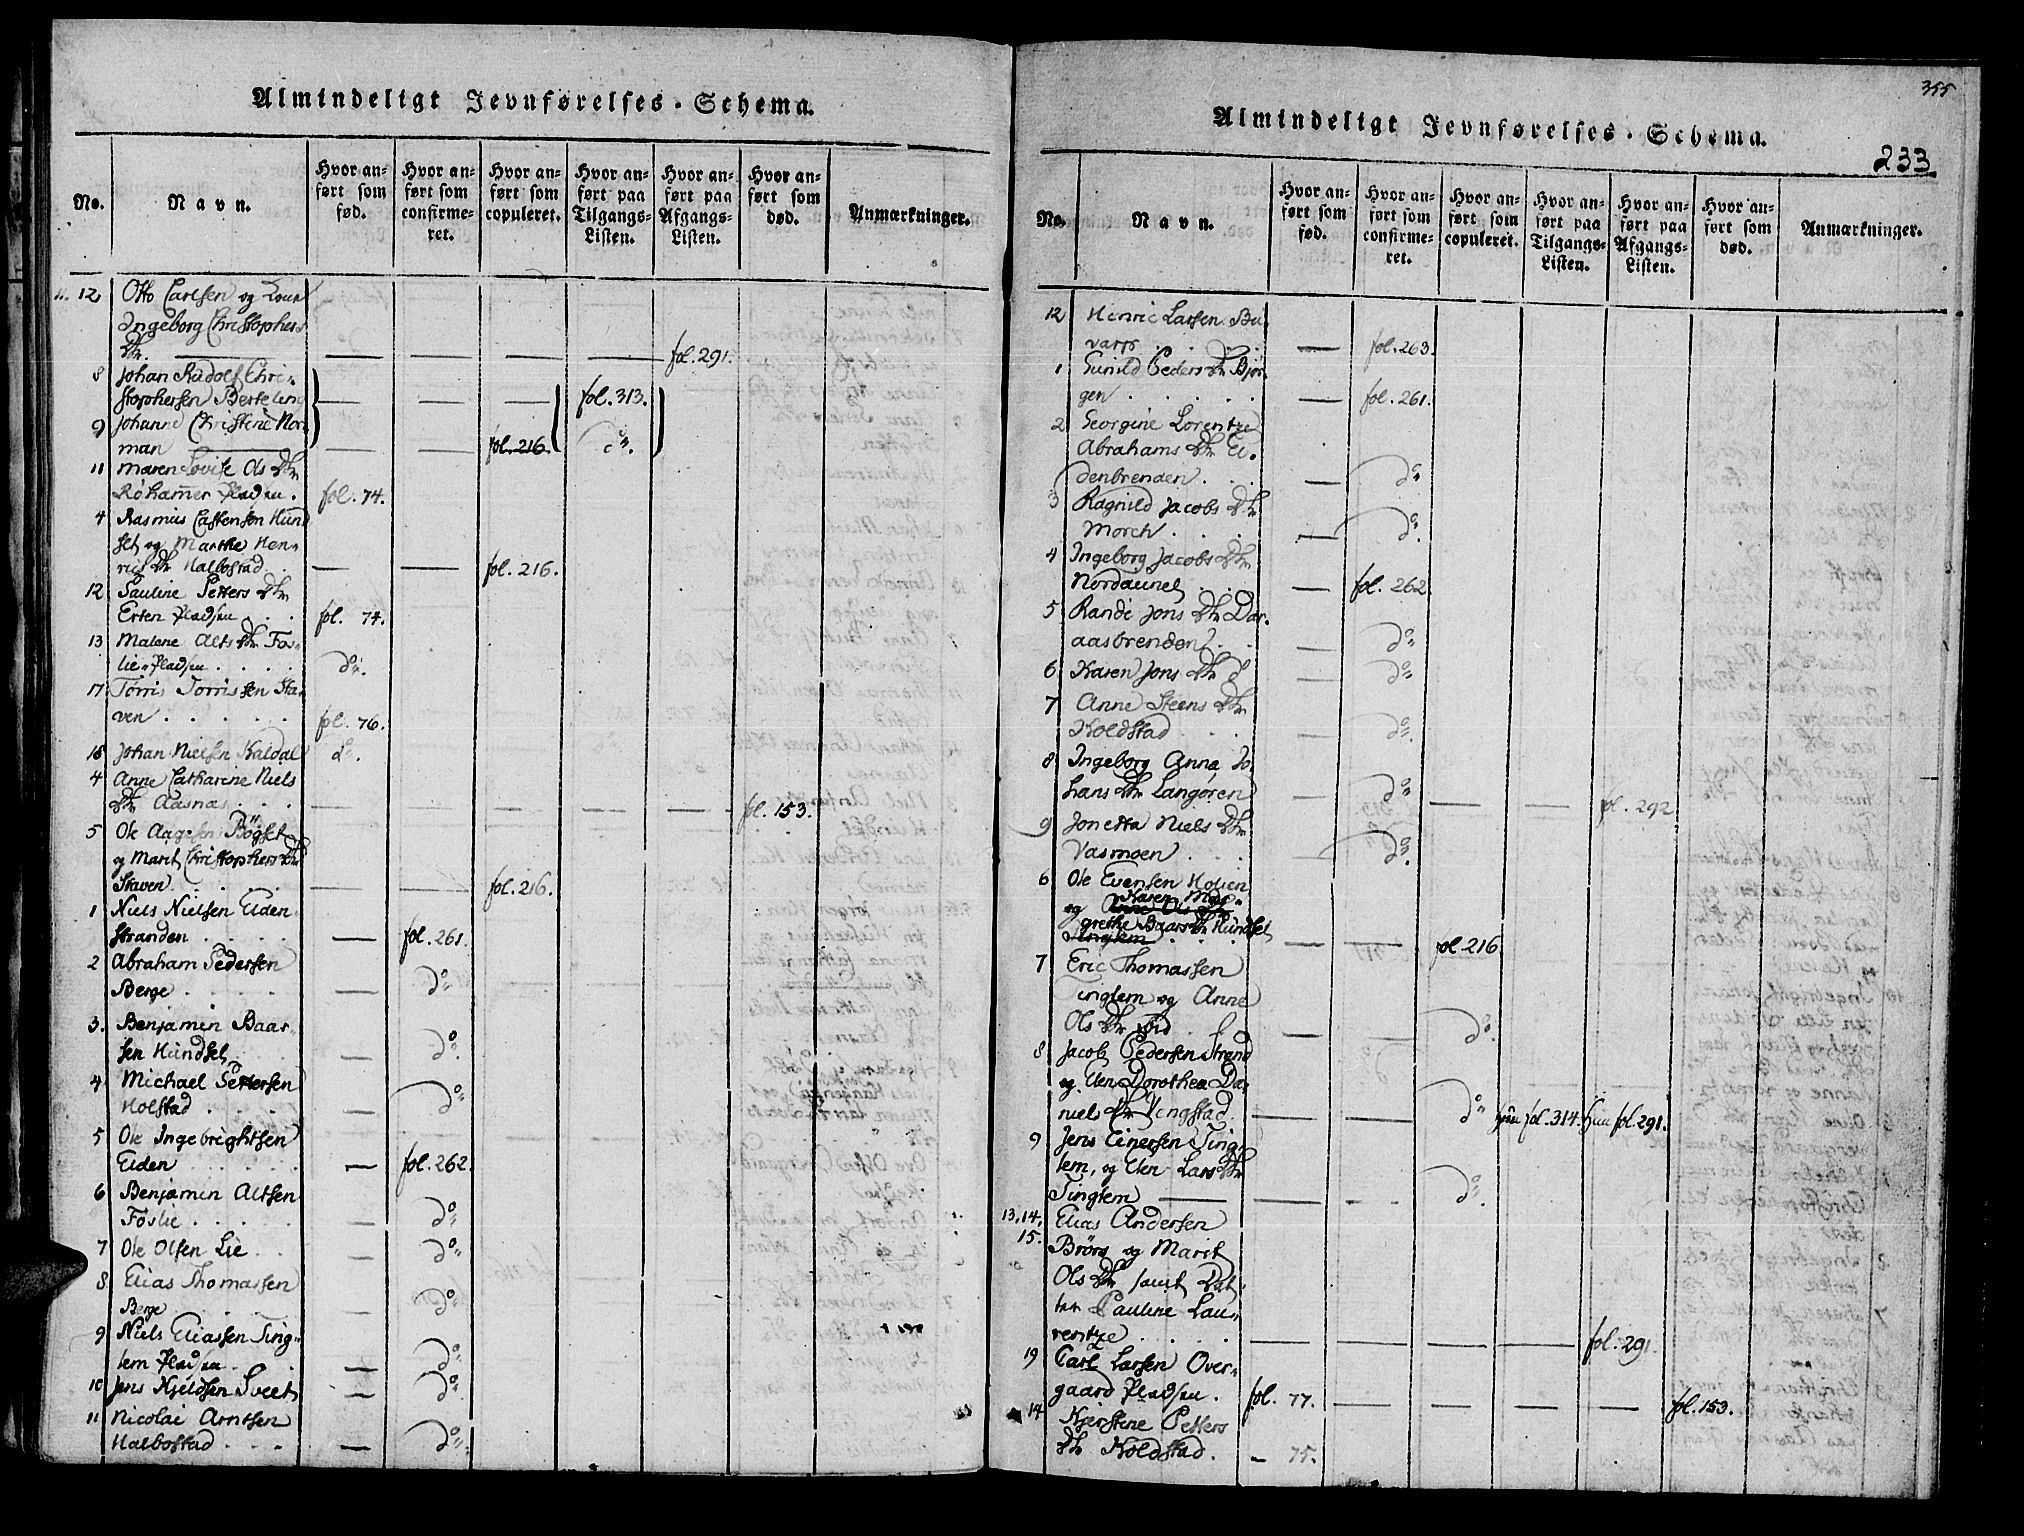 Almindeligt Jevnførelses-Schema.
No.
Navn.
Hvor anført som fød.
Hvor anført som confirmeret.
Hvor anført som copuleret.
Hvor anført paa Tilgangs-Listen.
Hvor anført paa Afgangs-Listen.
Hvor anført som død.
Anmærkninger.
12 Otto Carlsen og
Ingeborg Christophers
Dtr. fol. 291.
8 Johan Rudolf Chri-
stophersen Berteling fol. 313.
9 Johanne Christine Nor-
man fol. 216. do.
11 Maren Lovise Ols Dtr
Röhammer Pladsen. fol. 74.
4 Rasmus Castensen Hünd
set og Marthe Hen-
rics Dtr Halbostad. fol. 216.
12 Pauline Petters Dtr
Erten Pladsen fol. 74.
13 Malene Alts Dtr Fos-
lie-Pladsen do.
17 Torris Torrissen Sta-
ven fol. 76.
18 Johan Nielsen Kaldal do.
4 Anne Catharine Niels
Dtr Aasnas fol. 153.
5 Ole Aagesen Bögset
og Marit Christophers Dtr
Staven. fol. 216.
1 Niels Nielsen Eiden-
stranden fol. 261.
2 Abraham Pedersen
Berge do
3. Benjamin Baar-
sen Hündset do.
4 Michael Pettersen
Holstad do
5 Ole Ingebrightsen
Eiden fol. 262.
6 Benjamin Altsen
Foslie do
7 Ole Olsen Lie do
8 Elias Thomassen
Berge do
9 Niels Eliassen Ting-
lem Pladsen do
10 Jens Kjeldsen Sveet do.
11 Nicolai Arntsen
Halbostad do
355
Almindeligt Jevnførelses-Schema.
233
No.
Navn.
Hvor anført som fød.
Hvor anført som confirmeret.
Hvor anført som copuleret.
Hvor anført paa Tilgangs-Listen.
Hvor anført paa Afgangs-Listen.
Hvor anført som død.
Anmærkninger.
12 Henric Larsen Bü-
varp fol. 263.
1 Gunild Peders Dtr Bjør-
gen fol. 261.
2 Georgine Lorentze
Abrahams Dtr Ei-
denbrenden do
3 Ragnild Jacobs Dtr
Morch do.
4 Ingeborg Jacobs Dtr
Nordaunet fol. 262.
5 Randi Jons Dtr Dar-
aasbrenden do
6 Karen Jons Dtr do
7 Anne Steens Dtr
Holdstad do.
8 Ingeborg Anna Jo-
hans Dtr Langøren do fol. 292
9 Jonetta Niels Dtr
Vasmoen do.
6 Ole Evensen Holien
og Karen Mar-
grethe Baars Dtr Hundset
Tinglem fol. 216.
7 Eric Thomassen
Tinglem og Anne
Ols Dtr ibid do.
8 Jacob Pedersen Strand
og Elen Dorothea Da-
niel Dtr Vengstad do fol. 314. Hun fol. 291.
9 Jens Einersen Ting-
lem, og Elen Lars Dtr
Tinglem do.
13, 14,
15. Elias Andersen
Brörs og Marit
Ols Dtr samt Dat-
ter Pauline Lau-
rentze fol. 291.
19 Carl Larsen Over-
gaard Pladsen. fol. 77. fol. 153.
14 Kjerstine Petters
Dtr Holdstad. - 75.